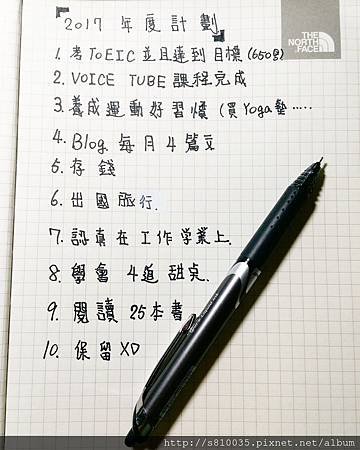 2017 年度計劃
THE
NORTH
FACE
1. 考TOEIC 並且達到目標(650分)
2. VOICE TUBE 課程完成
3. 養成運動好習慣 (買Yoga墊.....
4. Blog 每月4篇文
5. 存錢
6. 出國旅行.
7. 認真在工作学業上.
8. 學會 4道 甜點.
9. 閱讀 25本書
10. 保留XD
http://s810035.pixnet.net/album